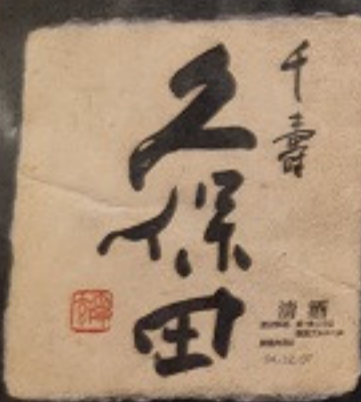 千壽
久保田
清酒